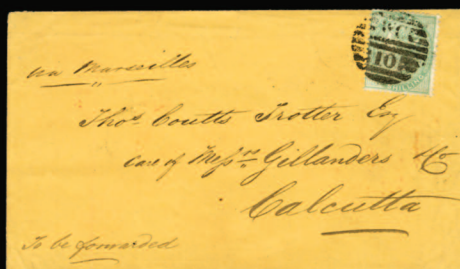 WC
10
SHILLING
via Marseilles
Thos. Coutts Trotter Esq
care of Messrs Gillanders & Co
Calcutta
To be forwarded